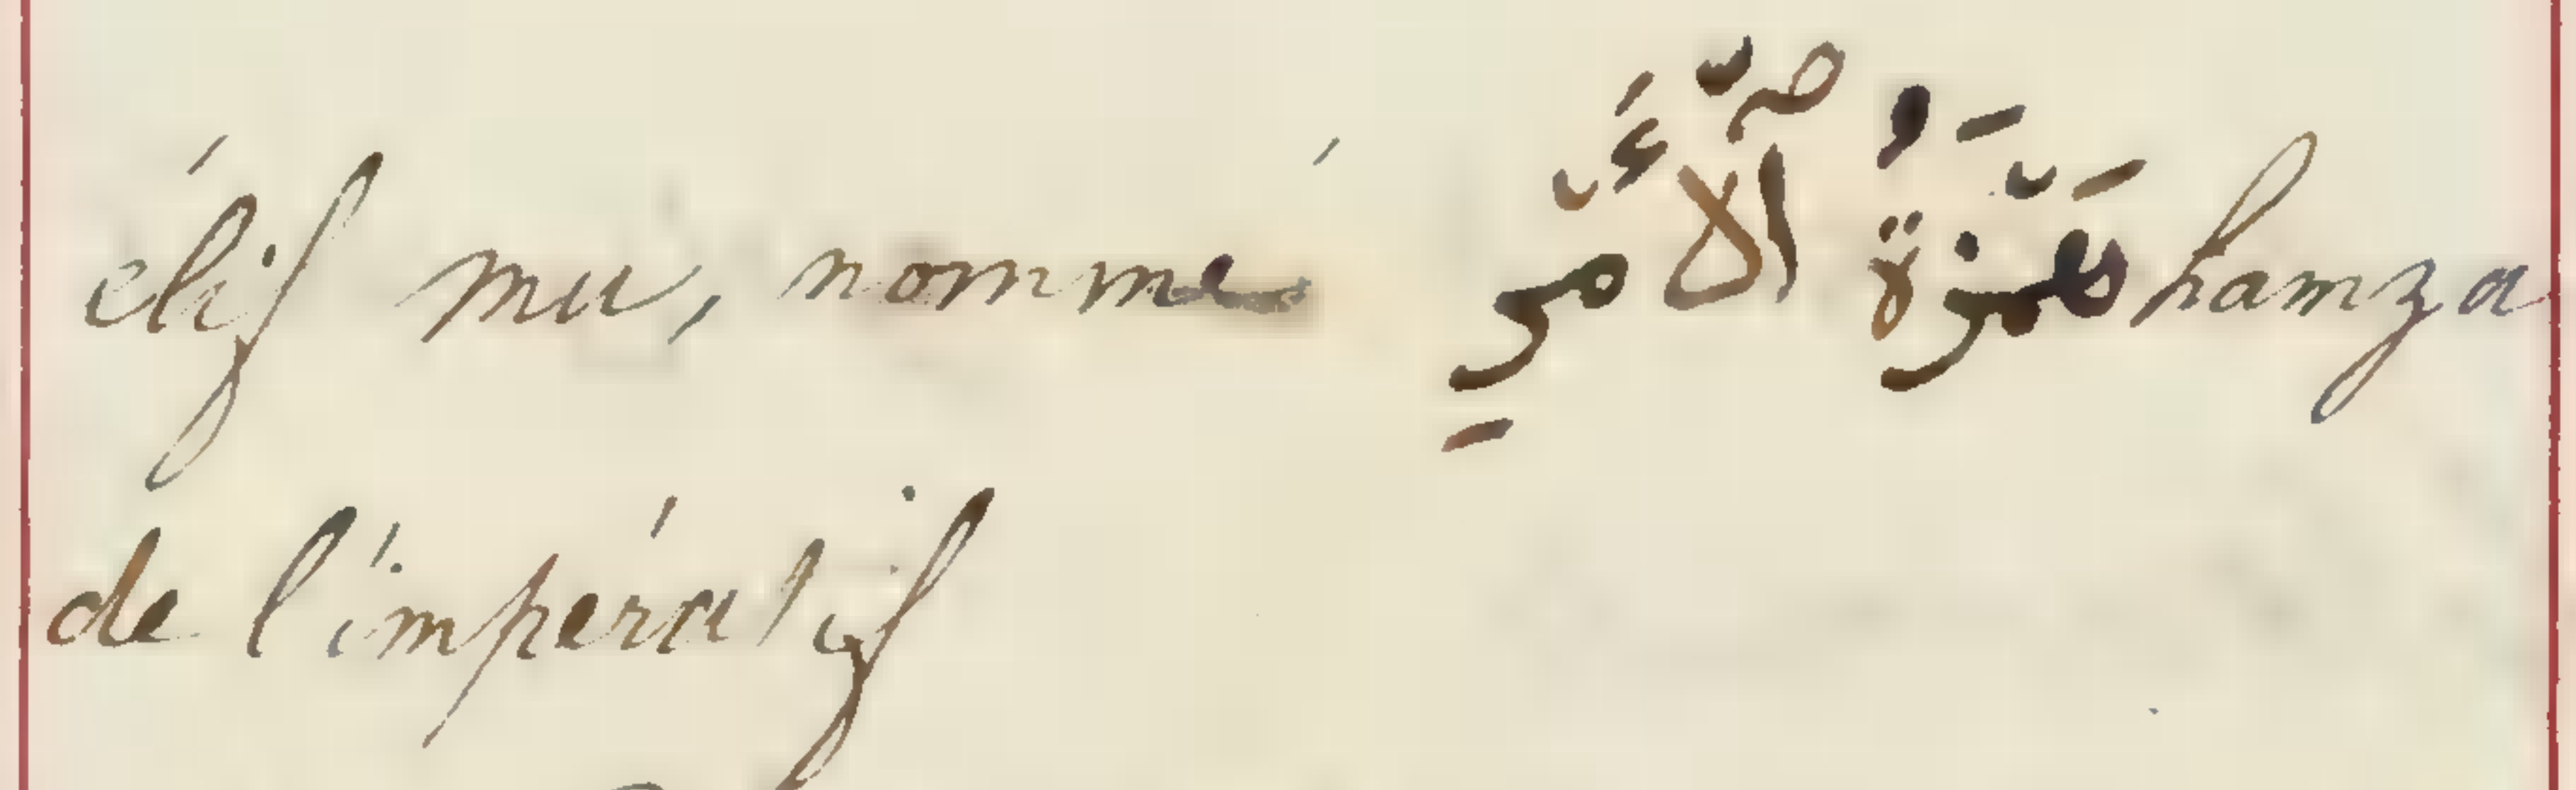 élif mu, nommé هَمْزَةُ ٱلْأَمْرِ hamza
de l'impératif